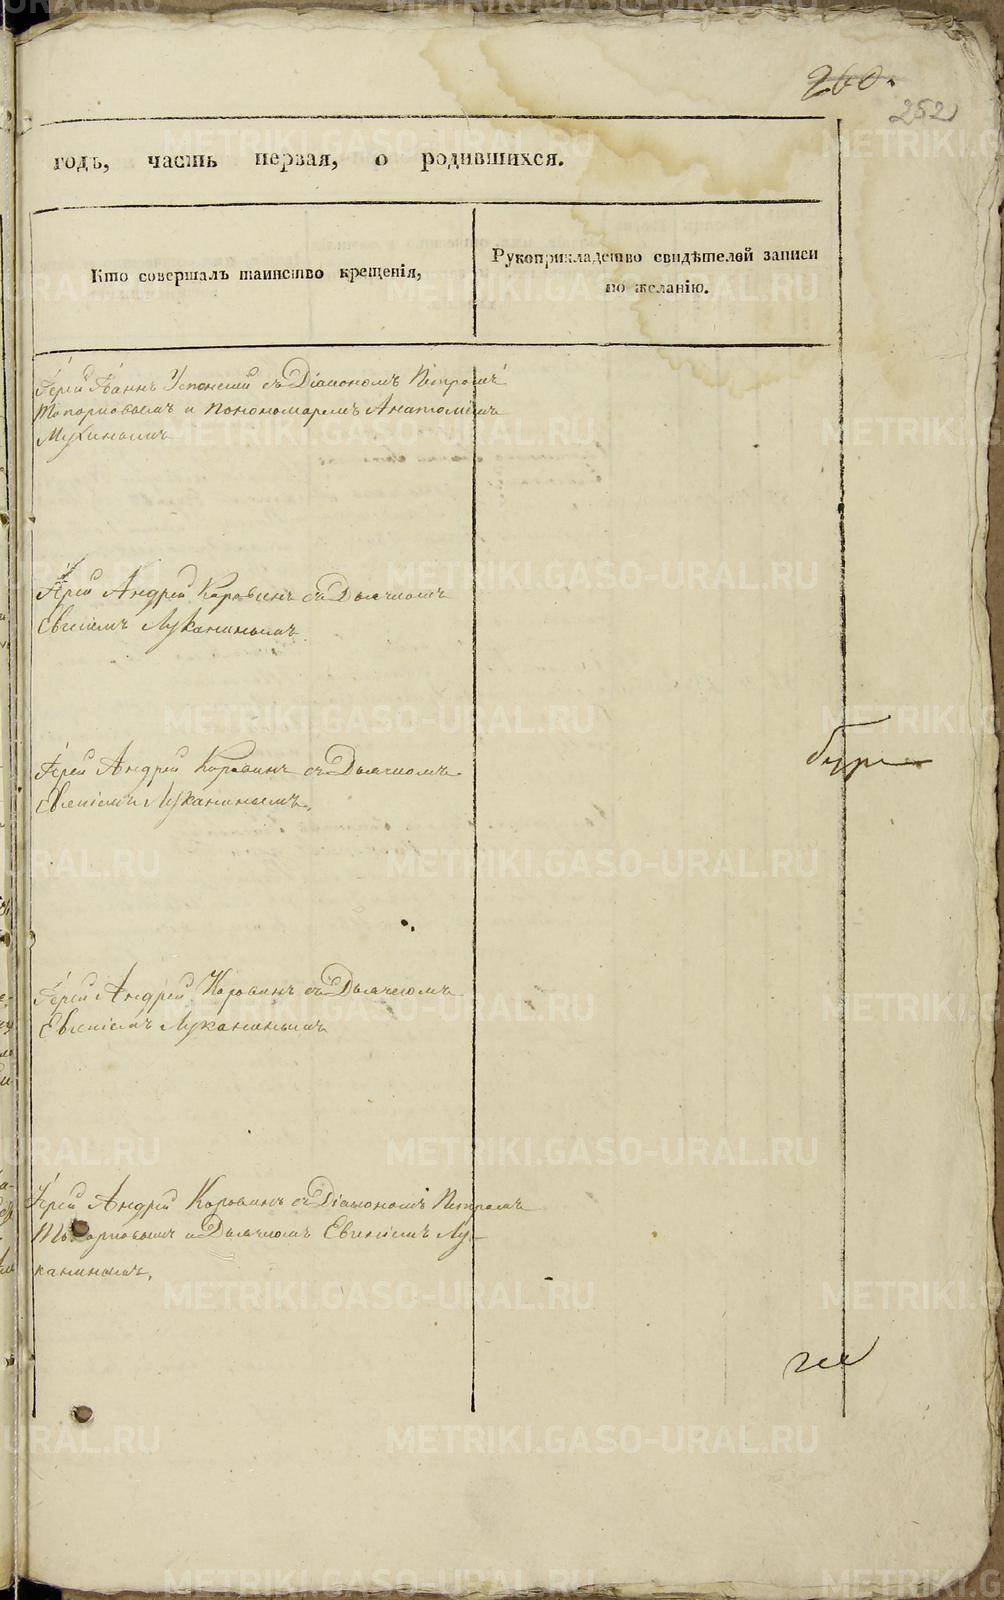 260.
252
годъ, часть первая, о родившихся.
Кто совершалъ таинство крещенія,
Рукоприкладство свидѣтелей записи
по желанію.
Іерей Іоаннъ Успенскій съ Діакономъ Петромъ
Топорковымъ и пономаремъ Анатоліемъ
Мухинымъ
Іерей Андрей Коровинъ съ Дьячкомъ
Евгеніемъ Луканинымъ
Іерей Андрей Коровинъ съ Дьячкомъ
Евгеніемъ Луканинымъ.
Іерей Андрей Коровинъ съ Дьячкомъ
Евгеніемъ Луканинымъ
Іерей Андрей Коровинъ съ Діакономъ Петромъ
Топорковымъ и Дьячкомъ Евгеніемъ Лу-
канинымъ.
METRIKI.GASO-URAL.RU